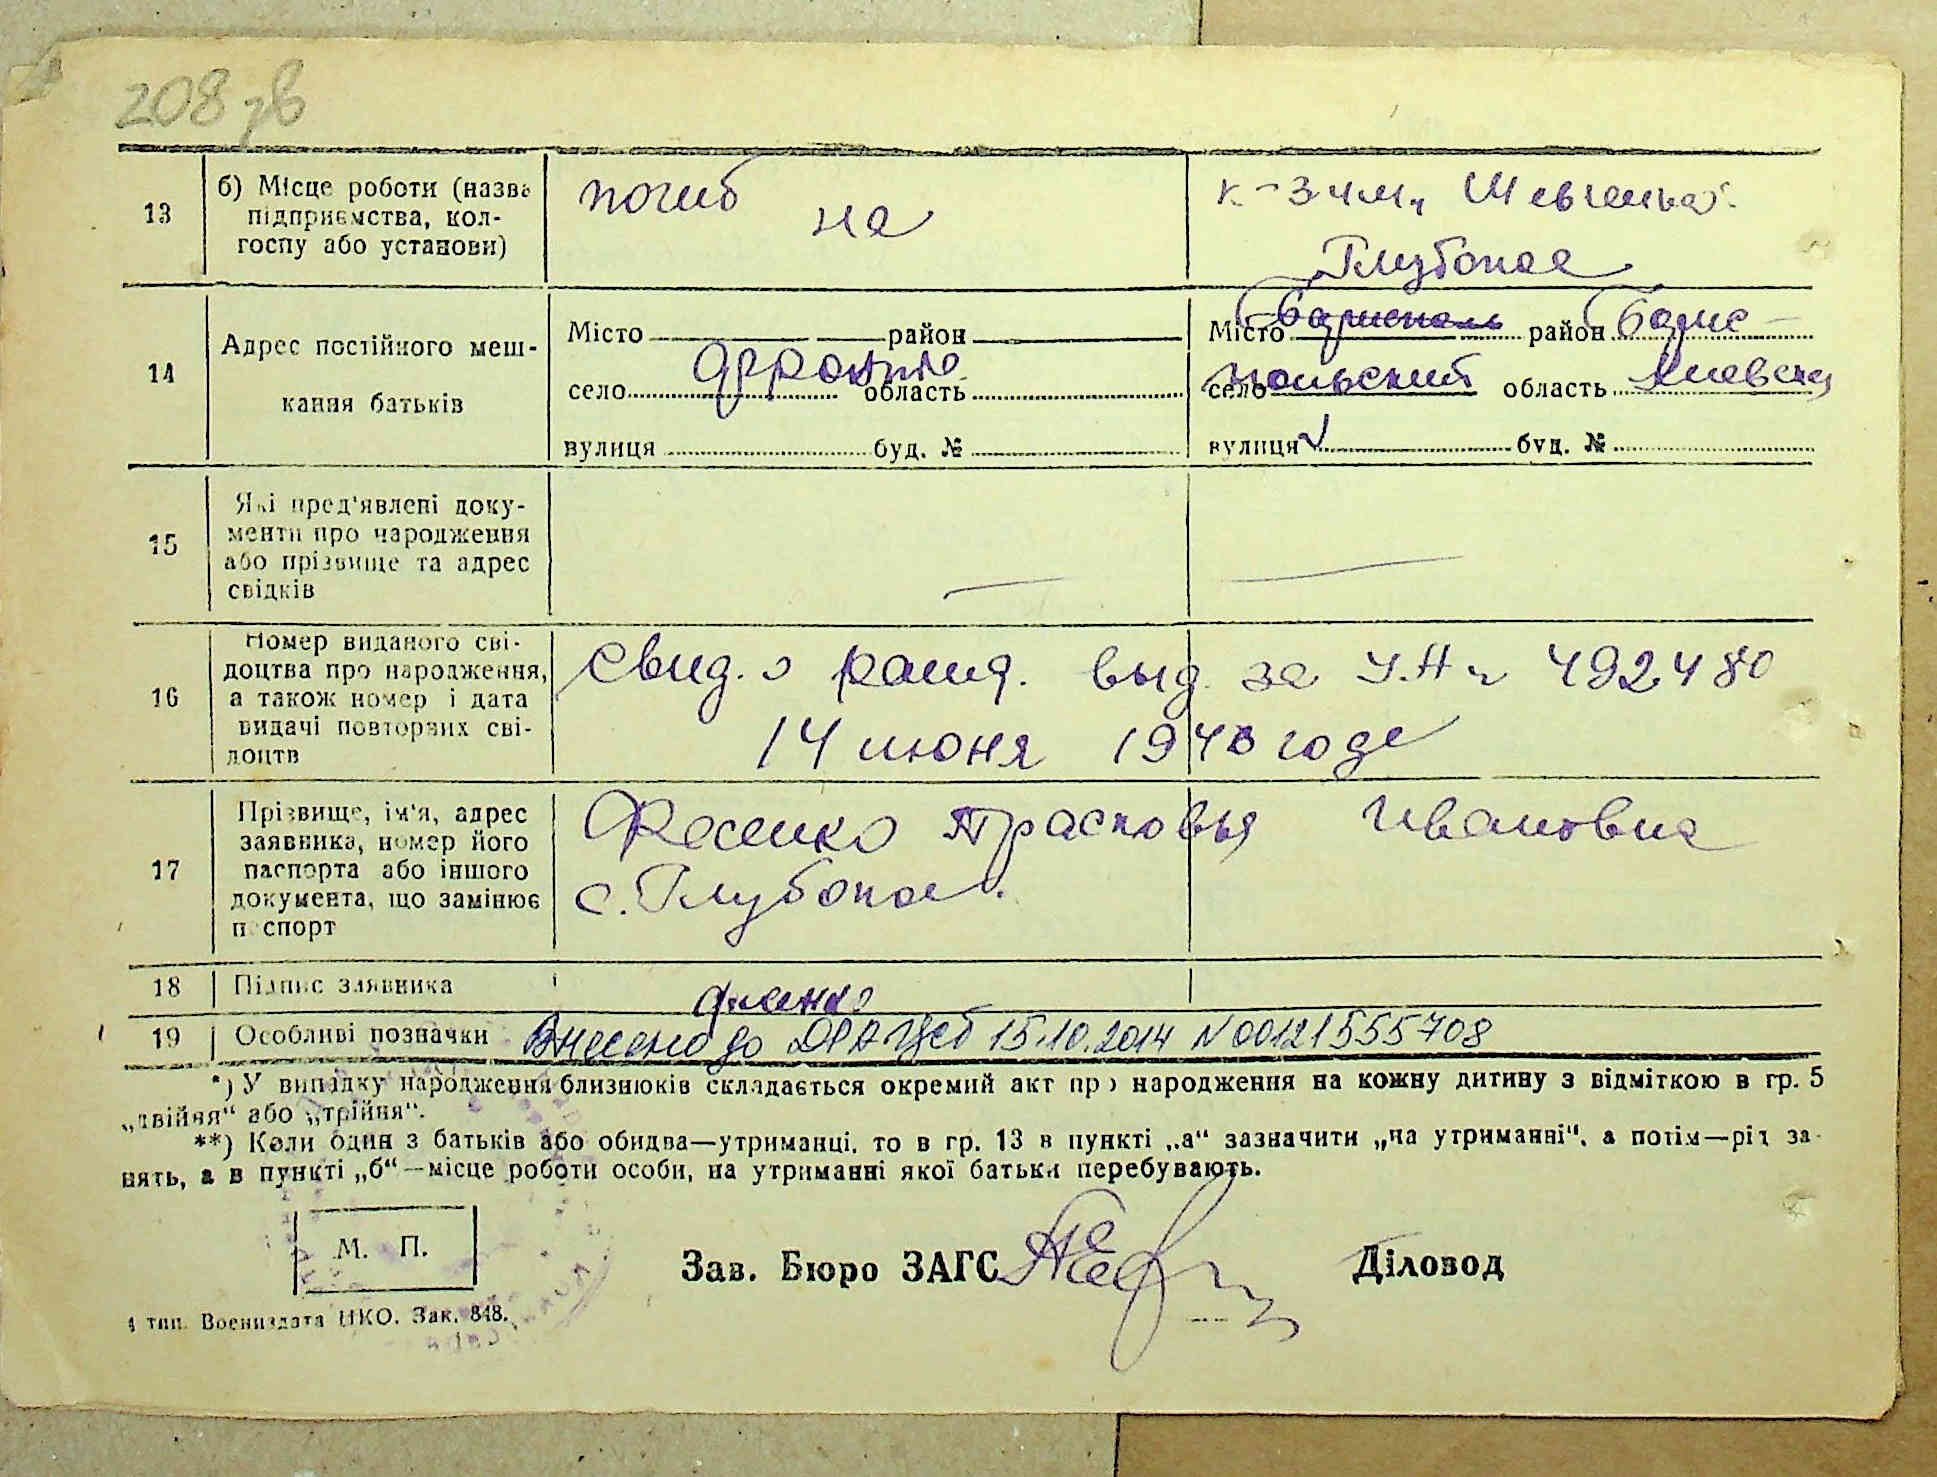 208 зв
13
б) Місце роботи (назва
підприємства, кол-
госпу або установи)
погиб на
к-з им. Шевченка
Глубокое
14
Адрес постійного меш-
кання батьків
Місто район
село область
вулиця буд. №
фронте
Місто Борисполь район Борис-
село польский область Киевская
вулиця буд. №
15
Які пред'явлені доку-
менти про народження
або прізвище та адрес
свідків
16
Номер виданого сві-
доцтва про народження,
а також номер і дата
видачі повторних сві-
доцтв
Свид. о рожд. выд. за У.Н. 492480
14 июня 1948 года
17
Прізвище, ім'я, адрес
заявника, номер його
паспорта або іншого
документа, що замінює
паспорт
Фесенко Прасковья Ивановна
с. Глубокое.
18 Підпис заявника
19 Особливі позначки Внесено до ДРАЦСГ 15.10.2014 N00121555708
*) У випадку народження близнюків складається окремий акт про народження на кожну дитину з відміткою в гр. 5
„двійня“ або „трійня“.
**) Коли один з батьків або обидва—утриманці, то в гр. 13 в пункті „а“ зазначити „на утриманні“, а потім—рід за-
нять, а в пункті „б“—місце роботи особи, на утриманні якої батьки перебувають.
М. П.
Зав. Бюро ЗАГС
Діловод
1 тип. Воениздата НКО. Зак. 848.